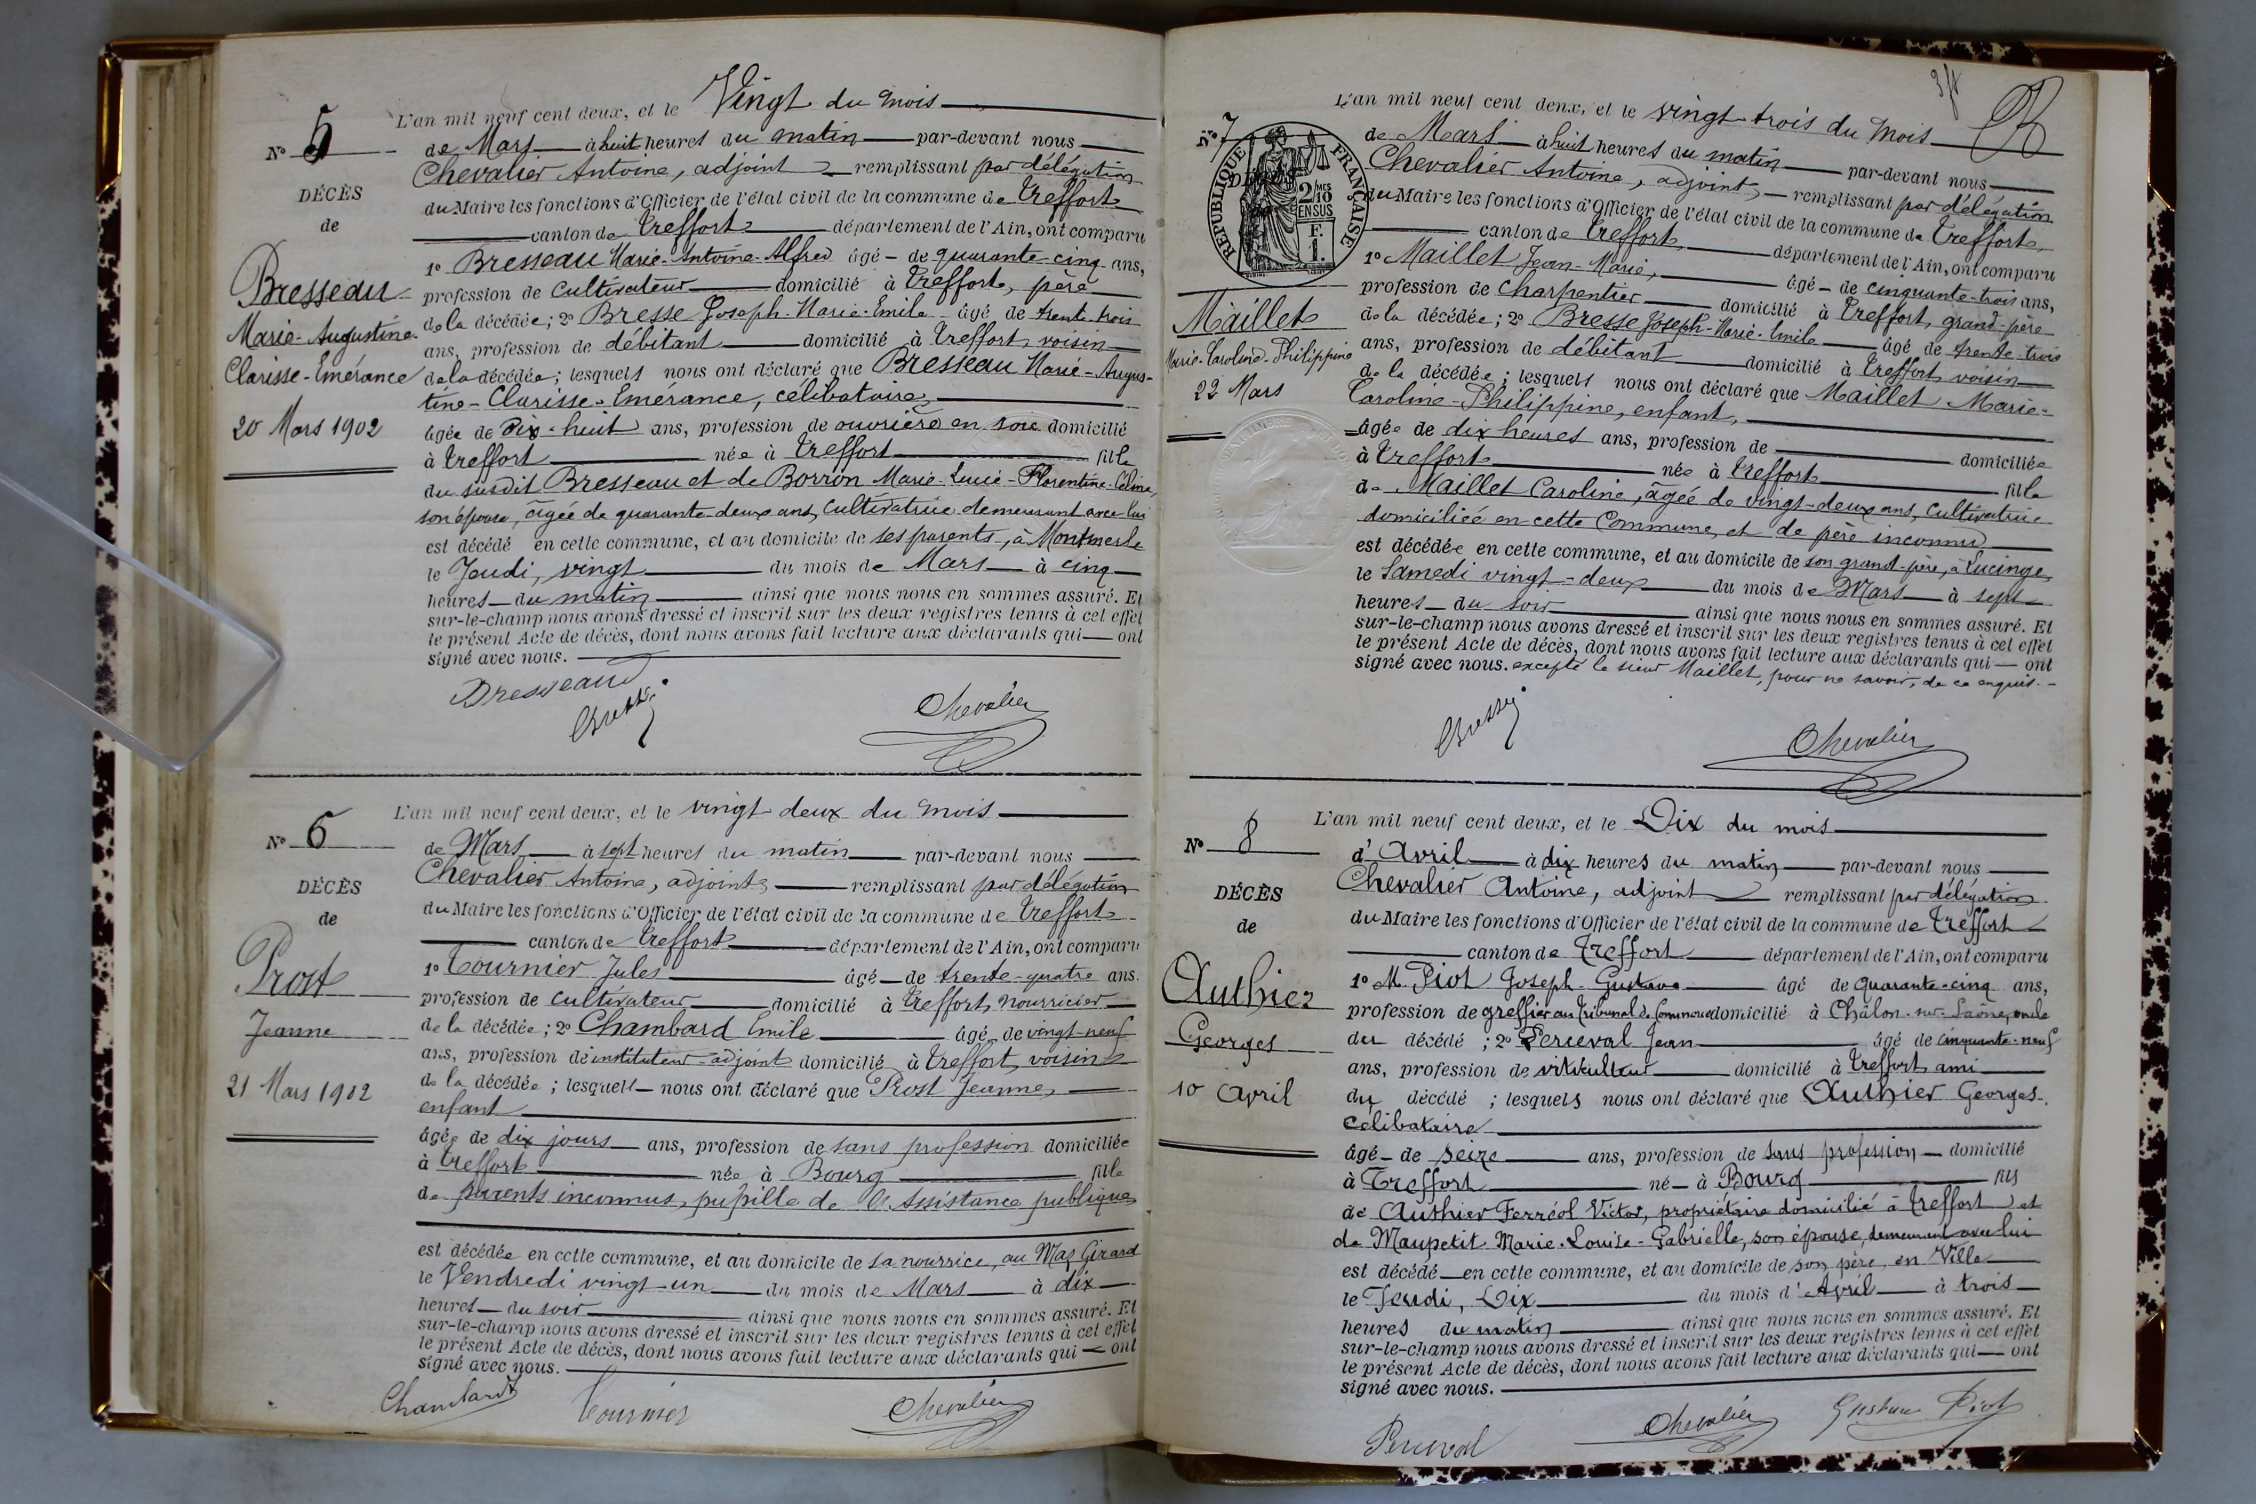 L'an mil neuf cent deux, et le Vingt du mois
N° 5
de Mars à huit heures du matin par-devant nous
Chevalier Antoine, adjoint remplissant par délégation
DÉCÈS
du Maire les fonctions d'Officier de l'état civil de la commune de Treffort
de
canton de Treffort département de l'Ain, ont comparu
1° Bresseau Marie-Antoine-Alfred âgé de quarante-cinq ans,
Bresseau
profession de cultivateur domicilié à Treffort, père
Marie-Augustine-
de la décédée; 2° Bresse Joseph-Marie-Emile âgé de trente-trois
ans, profession de débitant domicilié à Treffort, voisin
Clarisse-Emérance
de la décédée; lesquels nous ont déclaré que Bresseau Marie-Augus-
tine-Clarisse-Emérance, célibataire,
20 Mars 1902
âgée de Dix-huit ans, profession de ouvrière en soie domicilié
à Treffort née à Treffort fille
du susdit Bresseau et de Borron Marie-Lucie-Florentine-Céline,
son épouse, âgée de quarante-deux ans, cultivatrice demeurant avec lui
est décédé en cette commune, et au domicile de ses parents, à Montmerle
le Jeudi, vingt du mois de Mars à cinq
heures du matin ainsi que nous nous en sommes assuré. Et
sur-le-champ nous avons dressé et inscrit sur les deux registres tenus à cet effet
le présent Acte de décès, dont nous avons fait lecture aux déclarants qui ont
signé avec nous.
Bresseau
Bresse
Chevalier
L'an mil neuf cent deux, et le vingt-deux du mois
N° 6
de Mars à sept heures du matin par-devant nous
Chevalier Antoine, adjoint remplissant par délégation
DÉCÈS
du Maire les fonctions d'Officier de l'état civil de la commune de Treffort
de
canton de Treffort département de l'Ain, ont comparu
1° Tournier Jules âgé de trente-quatre ans.
Prost
profession de cultivateur domicilié à Treffort, nourricier
Jeanne
de la décédée; 2° Chambard Emile âgé de vingt-neuf
ans, profession de instituteur-adjoint domicilié à Treffort, voisin
21 Mars 1902
de la décédée; lesquels nous ont déclaré que Prost Jeanne,
enfant
âgée de dix jours ans, profession de sans profession domiciliée
à Treffort née à Bourg fille
de parents inconnus, pupille de l'Assistance publique
est décédée en cette commune, et au domicile de sa nourrice, au Mas Girard
le Vendredi vingt-un du mois de Mars à dix
heures du soir ainsi que nous nous en sommes assuré. Et
sur-le-champ nous avons dressé et inscrit sur les deux registres tenus à cet effet
le présent Acte de décès, dont nous avons fait lecture aux déclarants qui ont
signé avec nous.
Chambard
Tournier
Chevalier
L'an mil neuf cent deux, et le vingt-trois du mois
N° 7
de Mars à huit heures du matin par-devant nous
Chevalier Antoine, adjoint, remplissant par délégation
RÉPUBLIQUE FRANÇAISE
2/10 MES EN SUS
F. 1.
du Maire les fonctions d'Officier de l'état civil de la commune de Treffort,
canton de Treffort département de l'Ain, ont comparu
1° Maillet Jean-Marie, âgé de cinquante-trois ans,
profession de charpentier domicilié à Treffort, grand-père
Maillet
de la décédée; 2° Bresse Joseph-Marie-Emile âgé de trente-trois
Marie-Caroline-Philippine
ans, profession de débitant domicilié à Treffort voisin
22 Mars
de la décédée; lesquels nous ont déclaré que Maillet Marie-
Caroline-Philippine, enfant,
âgée de dix heures ans, profession de domiciliée
à Treffort née à Treffort fille
de Maillet Caroline, âgée de vingt-deux ans, cultivatrice
domiciliée en cette Commune, et de père inconnu
est décédée en cette commune, et au domicile de son grand-père, à Lucinge,
le Samedi vingt-deux du mois de Mars à sept
heures du soir ainsi que nous nous en sommes assuré. Et
sur-le-champ nous avons dressé et inscrit sur les deux registres tenus à cet effet
le présent Acte de décès, dont nous avons fait lecture aux déclarants qui ont
signé avec nous. excepté le sieur Maillet, pour ne savoir, de ce enquis.
Bresse
Chevalier
L'an mil neuf cent deux, et le Dix du mois
N° 8
d'Avril à dix heures du matin par-devant nous
Chevalier Antoine, adjoint remplissant par délégation
DÉCÈS
du Maire les fonctions d'Officier de l'état civil de la commune de Treffort
de
canton de Treffort département de l'Ain, ont comparu
1° M. Piot Joseph-Gustave âgé de quarante-cinq ans,
Authier
profession de greffier au Tribunal de Commerce domicilié à Châlon-sur-Saône, oncle
Georges
du décédé; 2° Perceval Jean âgé de cinquante-neuf
ans, profession de viticulteur domicilié à Treffort ami
10 Avril
du décédé; lesquels nous ont déclaré que Authier Georges.
célibataire
âgé de seize ans, profession de sans profession domicilié
à Treffort né à Bourg fils
de Authier Ferréol Victor, propriétaire domicilié à Treffort et
de Maupetit Marie-Louise-Gabrielle, son épouse, demeurant avec lui
est décédé en cette commune, et au domicile de son père, en Ville
le Jeudi, Dix du mois d'Avril à trois
heures du matin ainsi que nous nous en sommes assuré. Et
sur-le-champ nous avons dressé et inscrit sur les deux registres tenus à cet effet
le présent Acte de décès, dont nous avons fait lecture aux déclarants qui ont
signé avec nous.
Perceval
Chevalier
Gustave Piot